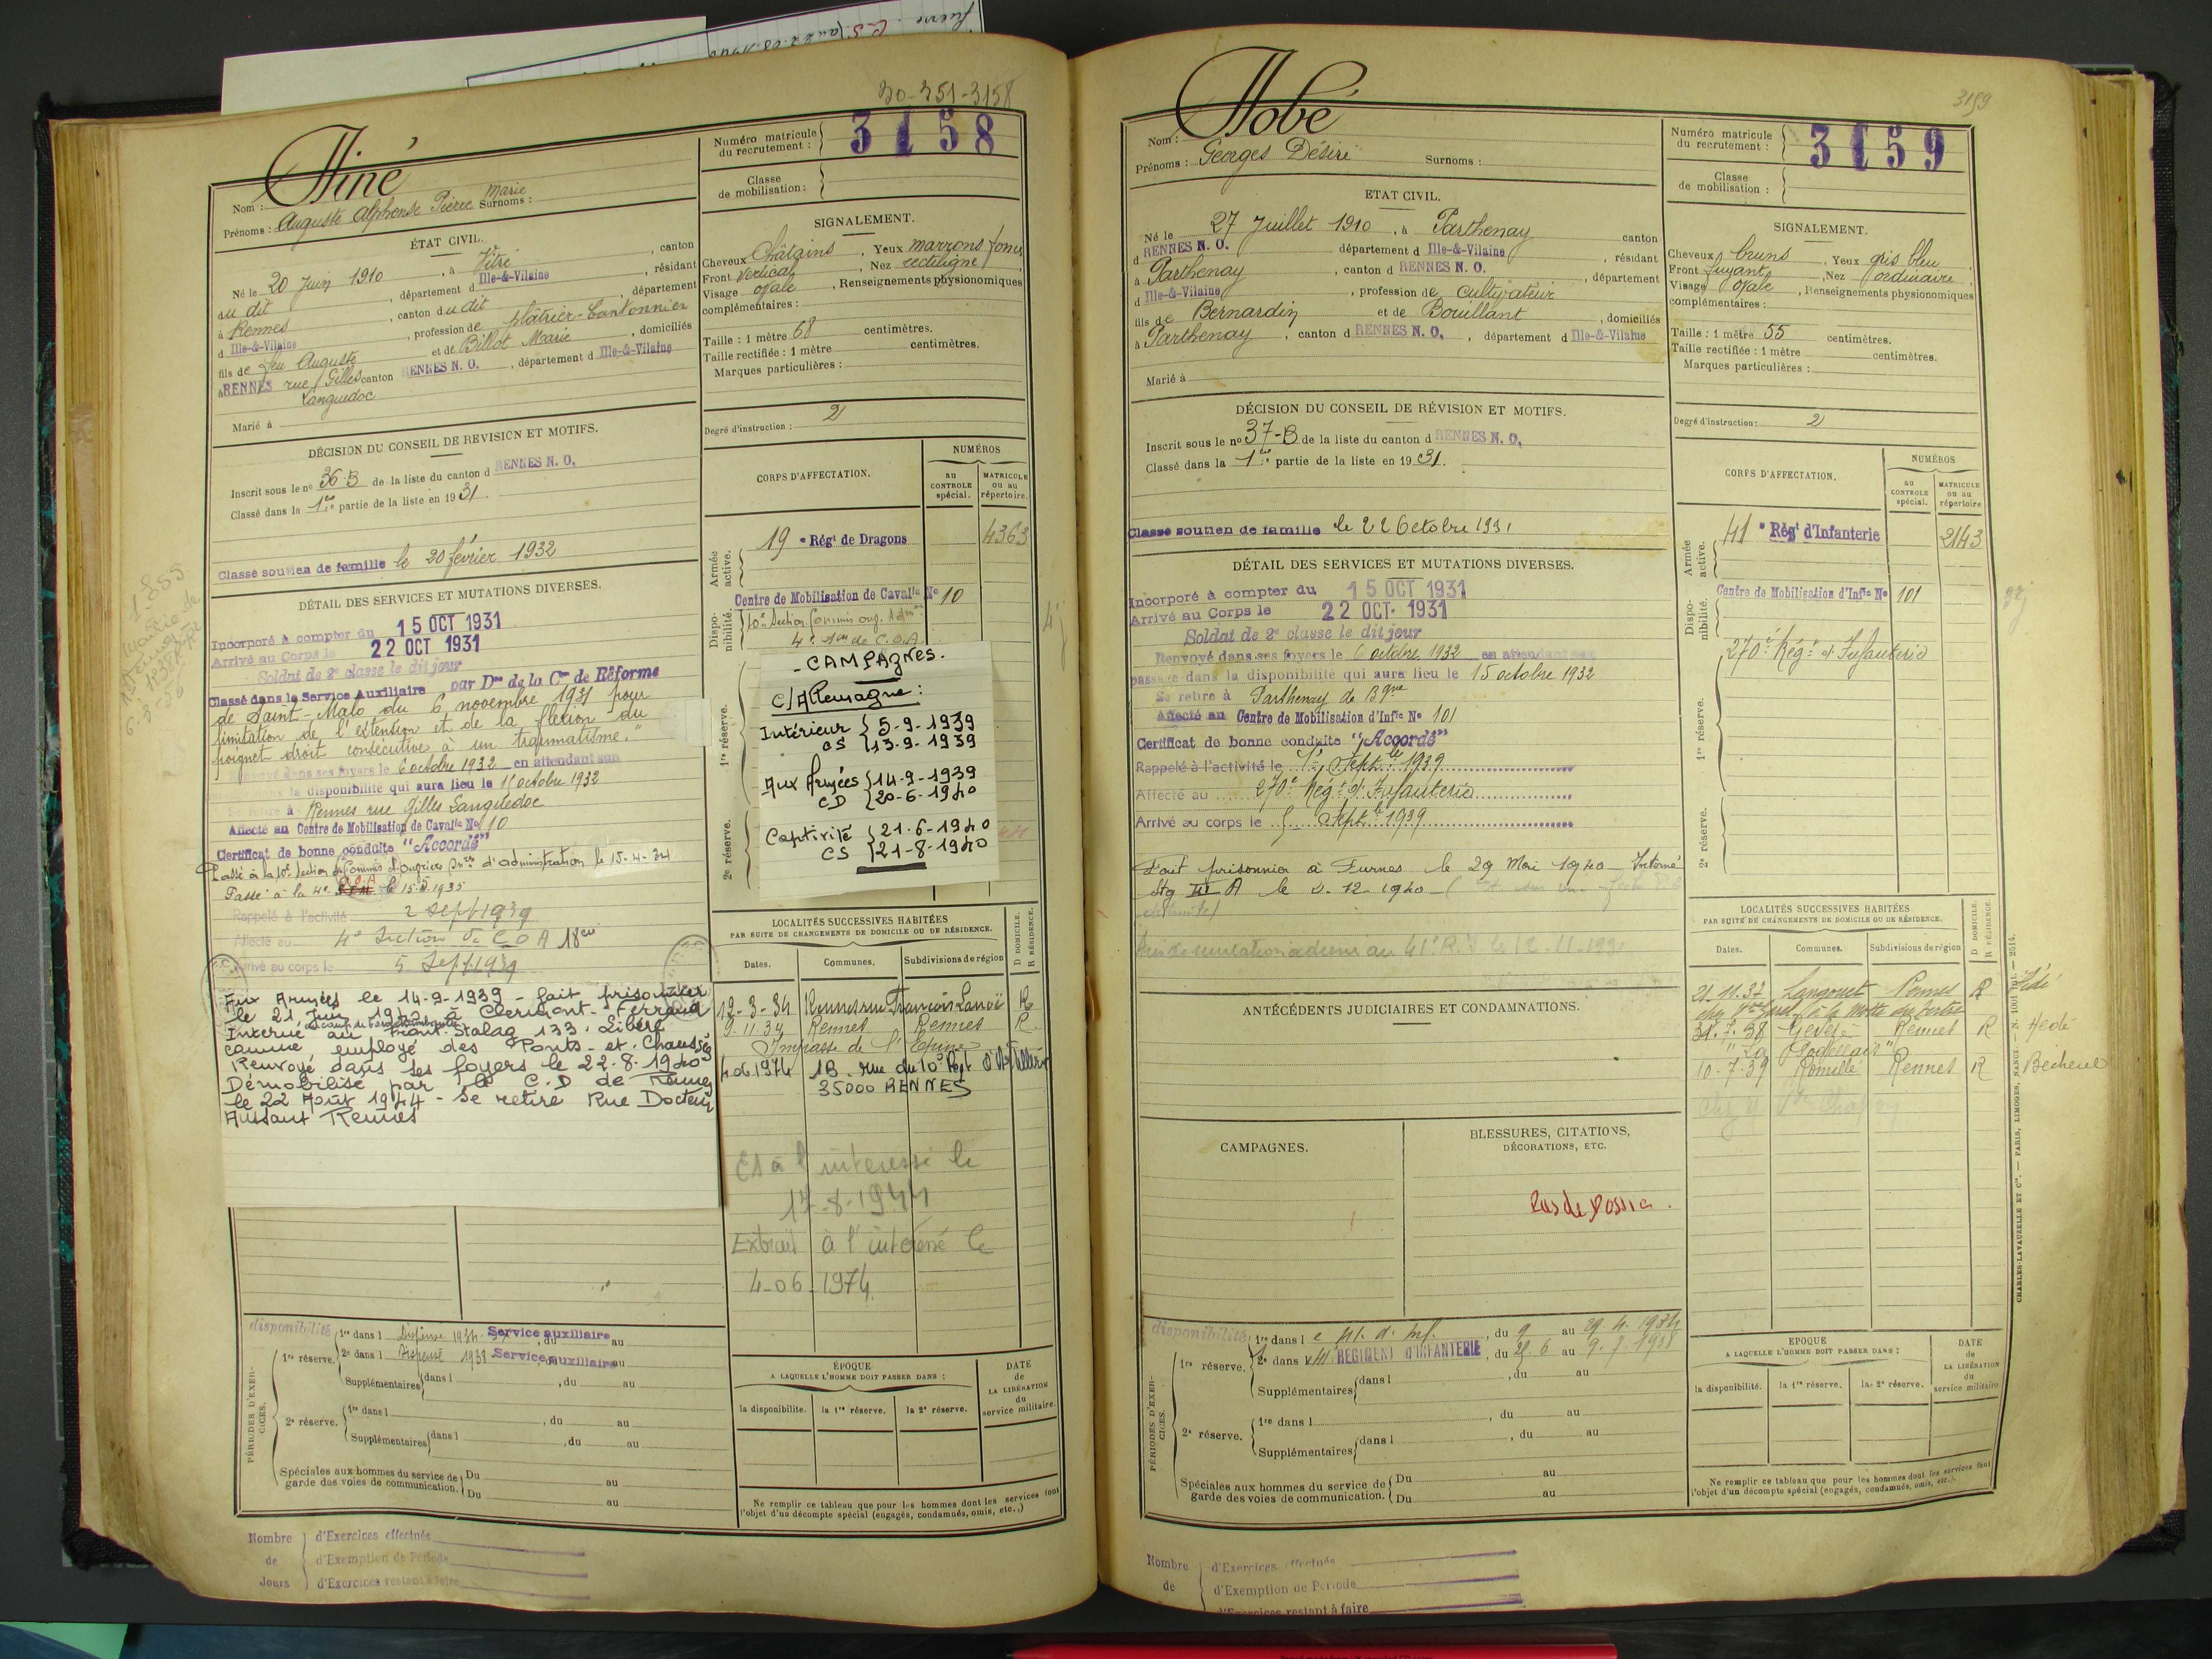 30-351-3158
Nom : Tiné
Prénoms : Auguste Alphonse Pierre Marie Surnoms :
Numéro matricule du recrutement : 3158
Classe de mobilisation :
ÉTAT CIVIL.
Né le 20 Juin 1910, à Vitré, canton
du dit, département d Ille-&-Vilaine, résidant
à Rennes, canton du dit, département
d Ille-&-Vilaine, profession de plâtrier-Cantonnier
fils de feu Auguste et de Billot Marie, domiciliés
à RENNES rue Gilles canton RENNES N. O., département d Ille-&-Vilaine
Languedoc
Marié à
SIGNALEMENT.
Cheveux Châtains, Yeux marrons foncés
Front vertical, Nez rectiligne,
Visage ovale, Renseignements physionomiques
complémentaires :
Taille : 1 mètre 68 centimètres.
Taille rectifiée : 1 mètre centimètres.
Marques particulières :
Degré d'instruction : 2
DÉCISION DU CONSEIL DE REVISION ET MOTIFS.
Inscrit sous le no 36-B de la liste du canton d RENNES N. O.
Classé dans la 1re partie de la liste en 1931.
Classé soutien de famille le 20 février 1932
DÉTAIL DES SERVICES ET MUTATIONS DIVERSES.
Incorporé à compter du 15 OCT 1931
Arrivé au Corps le 22 OCT 1931
Soldat de 2e classe le dit jour
Classé dans le Service Auxiliaire par Don de la Con de Réforme
de Saint-Malo du 6 novembre 1931 pour
limitation de l'extention et de la flexion du
poignet droit consécutive à un traumatisme."
Renvoyé dans ses foyers le 6 octobre 1932 en attendant son
la disponibilité qui aura lieu le 15 octobre 1932
Se retire à Rennes rue Gilles Languedoc
Affecté au Centre de Mobilisation de Cavalie No 10
Certificat de bonne conduite "Accordé"
Passé à la 10e Section de Commis et Ouvriers d'administration le 15-4-34
Passé à la 4e C.O.A. le 15.5.1935
Rappelé à l'activité 2 sept 1939
Affecté au 4e Section de C O A
Arrivé au corps le 5 Sept 1939
Aux Armées le 14-9-1939 - fait prisonnier
le 21 Juin 1940 à Clermont-Ferrand
Interné au Front-Stalag 133. Libéré
comme employé des Ponts-et-Chaussées
Renvoyé dans ses foyers le 22-8-1940
Démobilisé par le C.D de Rennes
le 22 Août 1944 - Se retire Rue Docteur
Aussant Rennes
CORPS D'AFFECTATION.
NUMÉROS
au CONTROLE spécial.
MATRICULE ou au répertoire.
Armée active.
19e Régt de Dragons 4363
Disponibilité.
Centre de Mobilisation de Cavalie No 10
1re réserve.
2e réserve.
- CAMPAGNES.
C/Allemagne :
Intérieur { 5-9-1939
CS { 13-9-1939
Aux Armées { 14-9-1939
CD { 20-6-1940
Captivité { 21-6-1940
CS { 21-8-1940
LOCALITÉS SUCCESSIVES HABITÉES
PAR SUITE DE CHANGEMENTS DE DOMICILE OU DE RÉSIDENCE.
D DOMICILE. R RÉSIDENCE.
Dates. Communes. Subdivisions de région
12-3-34 Rennes rue François Lanoë R
9.11.34 Rennes Rennes R
Impasse de l'Epine
4.06.1974 1B rue du 10e Rgt d'Artillerie
35000 RENNES
CS à l'intéressé le
17-8-1944
Extrait à l'intéressé le
4-06-1974
disponibilité
PÉRIODES D'EXERCICES.
1re réserve.
1re dans l Dispensé 1934 Service auxiliaire, du au
2e dans l Dispensé 1938 Service auxiliaire au
Supplémentaires dans l , du au
2e réserve.
1re dans l , du au
Supplémentaires dans l , du au
Spéciales aux hommes du service de garde des voies de communication. Du au
Du au
ÉPOQUE
A LAQUELLE L'HOMME DOIT PASSER DANS :
la disponibilité. la 1re réserve. la 2e réserve.
DATE de LA LIBÉRATION du service militaire.
Ne remplir ce tableau que pour les hommes dont les services font
l'objet d'un décompte spécial (engagés, condamnés, omis, etc.,)
Nombre de Jours
d'Exercices effectués
d'Exemption de Période
d'Exercices restant à faire
3159
Nom : Tobé
Prénoms : Georges Désiré Surnoms :
Numéro matricule du recrutement : 3159
Classe de mobilisation :
ETAT CIVIL.
Né le 27 Juillet 1910, à Parthenay canton
d RENNES N. O. département d Ille-&-Vilaine, résidant
à Parthenay, canton d RENNES N. O., département
d Ille-&-Vilaine, profession de cultivateur
fils de Bernardin et de Bouillant, domiciliés
à Parthenay, canton d RENNES N. O., département d Ille-&-Vilaine
Marié à
SIGNALEMENT.
Cheveux bruns, Yeux gris bleu
Front fuyant, Nez ordinaire,
Visage ovale, Renseignements physionomiques
complémentaires :
Taille : 1 mètre 55 centimètres.
Taille rectifiée : 1 mètre centimètres.
Marques particulières :
Degré d'instruction : 2
DÉCISION DU CONSEIL DE RÉVISION ET MOTIFS.
Inscrit sous le no 37-B de la liste du canton d RENNES N. O.
Classé dans la 1re partie de la liste en 1931.
Classé soutien de famille le 22 Octobre 1931
DÉTAIL DES SERVICES ET MUTATIONS DIVERSES.
Incorporé à compter du 15 OCT 1931
Arrivé au Corps le 22 OCT. 1931
Soldat de 2e classe le dit jour
Renvoyé dans ses foyers le 6 octobre 1932 en attendant son
passage dans la disponibilité qui aura lieu le 15 octobre 1932
Se retire à Parthenay de Bgne
Affecté au Centre de Mobilisation d'Infie No 101
Certificat de bonne conduite "Accordé"
Rappelé à l'activité le 1er Septbre 1939
Affecté au 270e Régt d'Infanterie
Arrivé au corps le 5 Septbre 1939
Fait prisonnier à Furnes le 29 Mai 1940 - Interné
Stg III A le 2-12-1940
CORPS D'AFFECTATION.
NUMÉROS
au CONTROLE spécial.
MATRICULE ou au répertoire
Armée active.
41e Régt d'Infanterie 2143
Disponibilité.
Centre de Mobilisation d'Infie No 101
270e Régt d'Infanterie
1re réserve.
2e réserve.
ANTÉCÉDENTS JUDICIAIRES ET CONDAMNATIONS.
CAMPAGNES.
BLESSURES, CITATIONS,
DÉCORATIONS, ETC.
Pas de Dossier.
LOCALITÉS SUCCESSIVES HABITÉES
PAR SUITE DE CHANGEMENTS DE DOMICILE OU DE RÉSIDENCE.
D DOMICILE. R RÉSIDENCE.
Dates. Communes. Subdivisions de région
21.11.37 Langouet Rennes R Hédé
31.7.38 Gévezé Rennes R Hédé
10-7-39 Romillé Rennes R Bécherel
disponibilité
PÉRIODES D'EXERCICES.
1re réserve.
1re dans le 41. d'inf., du 9 au 29.4.1934
2e dans l 41 REGIMENT D'INFANTERIE, du 21.6 au 9.7.1938
Supplémentaires dans l , du au
2e réserve.
1re dans l , du au
Supplémentaires dans l , du au
Spéciales aux hommes du service de garde des voies de communication. Du au
Du au
EPOQUE
A LAQUELLE L'HOMME DOIT PASSER DANS :
la disponibilité. la 1re réserve. la 2e réserve.
DATE de LA LIBÉRATION du service militaire.
Ne remplir ce tableau que pour les hommes dont les services font
l'objet d'un décompte spécial (engagés, condamnés, omis, etc.).
CHARLES-LAVAUZELLE ET Cie. — PARIS, LIMOGES, NANCY
Nombre de
d'Exercices effectués
d'Exemption de Période
d'Exercices restant à faire